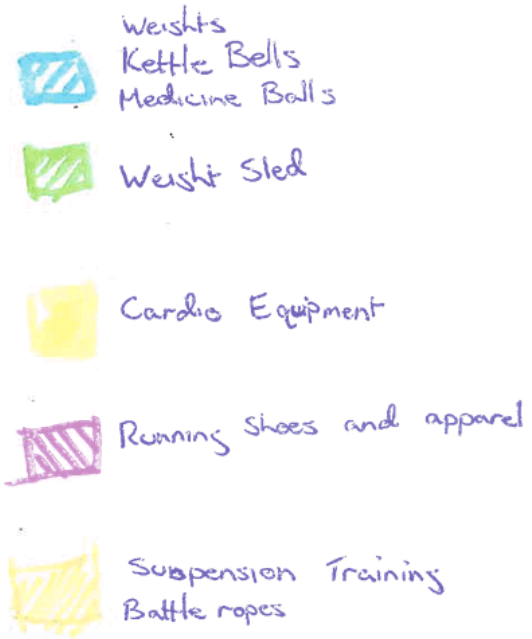 Weights
Kettle Bells
Medicine Balls
Weight Sled
Cardio Equipment
Running Shoes and apparel
Suspension Training
Battle ropes